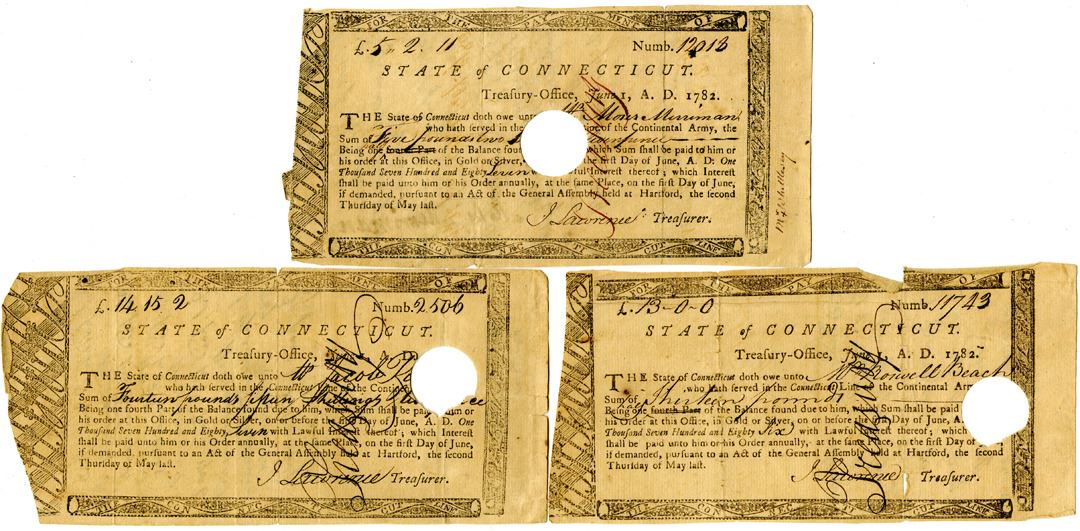 FOR THE PAY MENT OF
£. 5 " 2. 11 Numb. 12013
STATE of CONNECTICUT.
Treasury-Office, June 1, A. D. 1782.
THE State of Connecticut doth owe unto Moses Merriman
who hath served in the Line of the Continental Army, the
Sum of Five pounds two
Being one fourth Part of the Balance found which Sum shall be paid to him or
his order at this Office, in Gold or Silver, the first Day of June, A. D. One
Thousand Seven Hundred and Eighty Seven Lawful Interest thereof; which Interest
shall be paid unto him or his Order annually, at the same Place, on the first Day of June,
if demanded, pursuant to an Act of the General Assembly held at Hartford, the second
Thursday of May last.
J Lawrence Treasurer.
THE CON NEC TI CUT LINE
£. 14 15 2 Numb. 2506
STATE of CONNECTICUT.
Treasury-Office,
THE State of Connecticut doth owe unto Mr Jacob
who hath served in the Connecticut Line of the Continental
Sum of Fourteen pounds fifteen Shillings
Being one fourth Part of the Balance found due to him, which Sum shall be paid to him or
his order at this Office, in Gold or Silver, on or before the first Day of June, A. D. One
Thousand Seven Hundred and Eighty with Lawful Interest thereof; which Interest
shall be paid unto him or his Order annually, at the same Place, on the first Day of June,
if demanded, pursuant to an Act of the General Assembly held at Hartford, the second
Thursday of May last.
J Lawrence Treasurer.
CON NEC TI CUT LINE
FOR THE PAY OF
£. 13-0-0 Numb. 11743
STATE of CONNECTICUT.
Treasury-Office, June 1, A. D. 1782.
THE State of Connecticut doth owe unto Beach
who hath served in the Connecticut Line of the Continental Army
Sum of Thirteen pounds
Being one fourth Part of the Balance found due to him, which Sum shall be paid
his Order at this Office, in Gold or Silver, on or before the first Day of June, A. D.
Thousand Seven Hundred and Eighty Six with Lawful Interest thereof; which
shall be paid unto him or his Order annually, at the same Place, on the first Day of
if demanded, pursuant to an Act of the General Assembly held at Hartford, the second
Thursday of May last.
J Lawrence Treasurer.
THE CON NEC TI CUT LINE